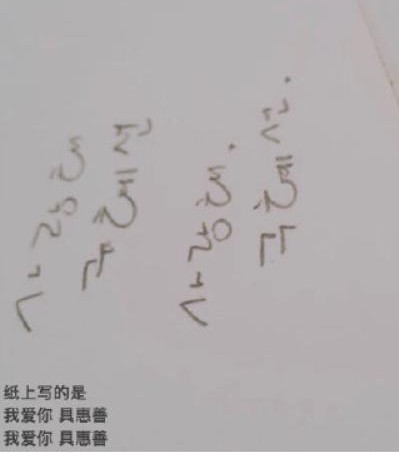 사랑해
구혜선
사랑해.
구혜선.
纸上写的是
我爱你 具惠善
我爱你 具惠善